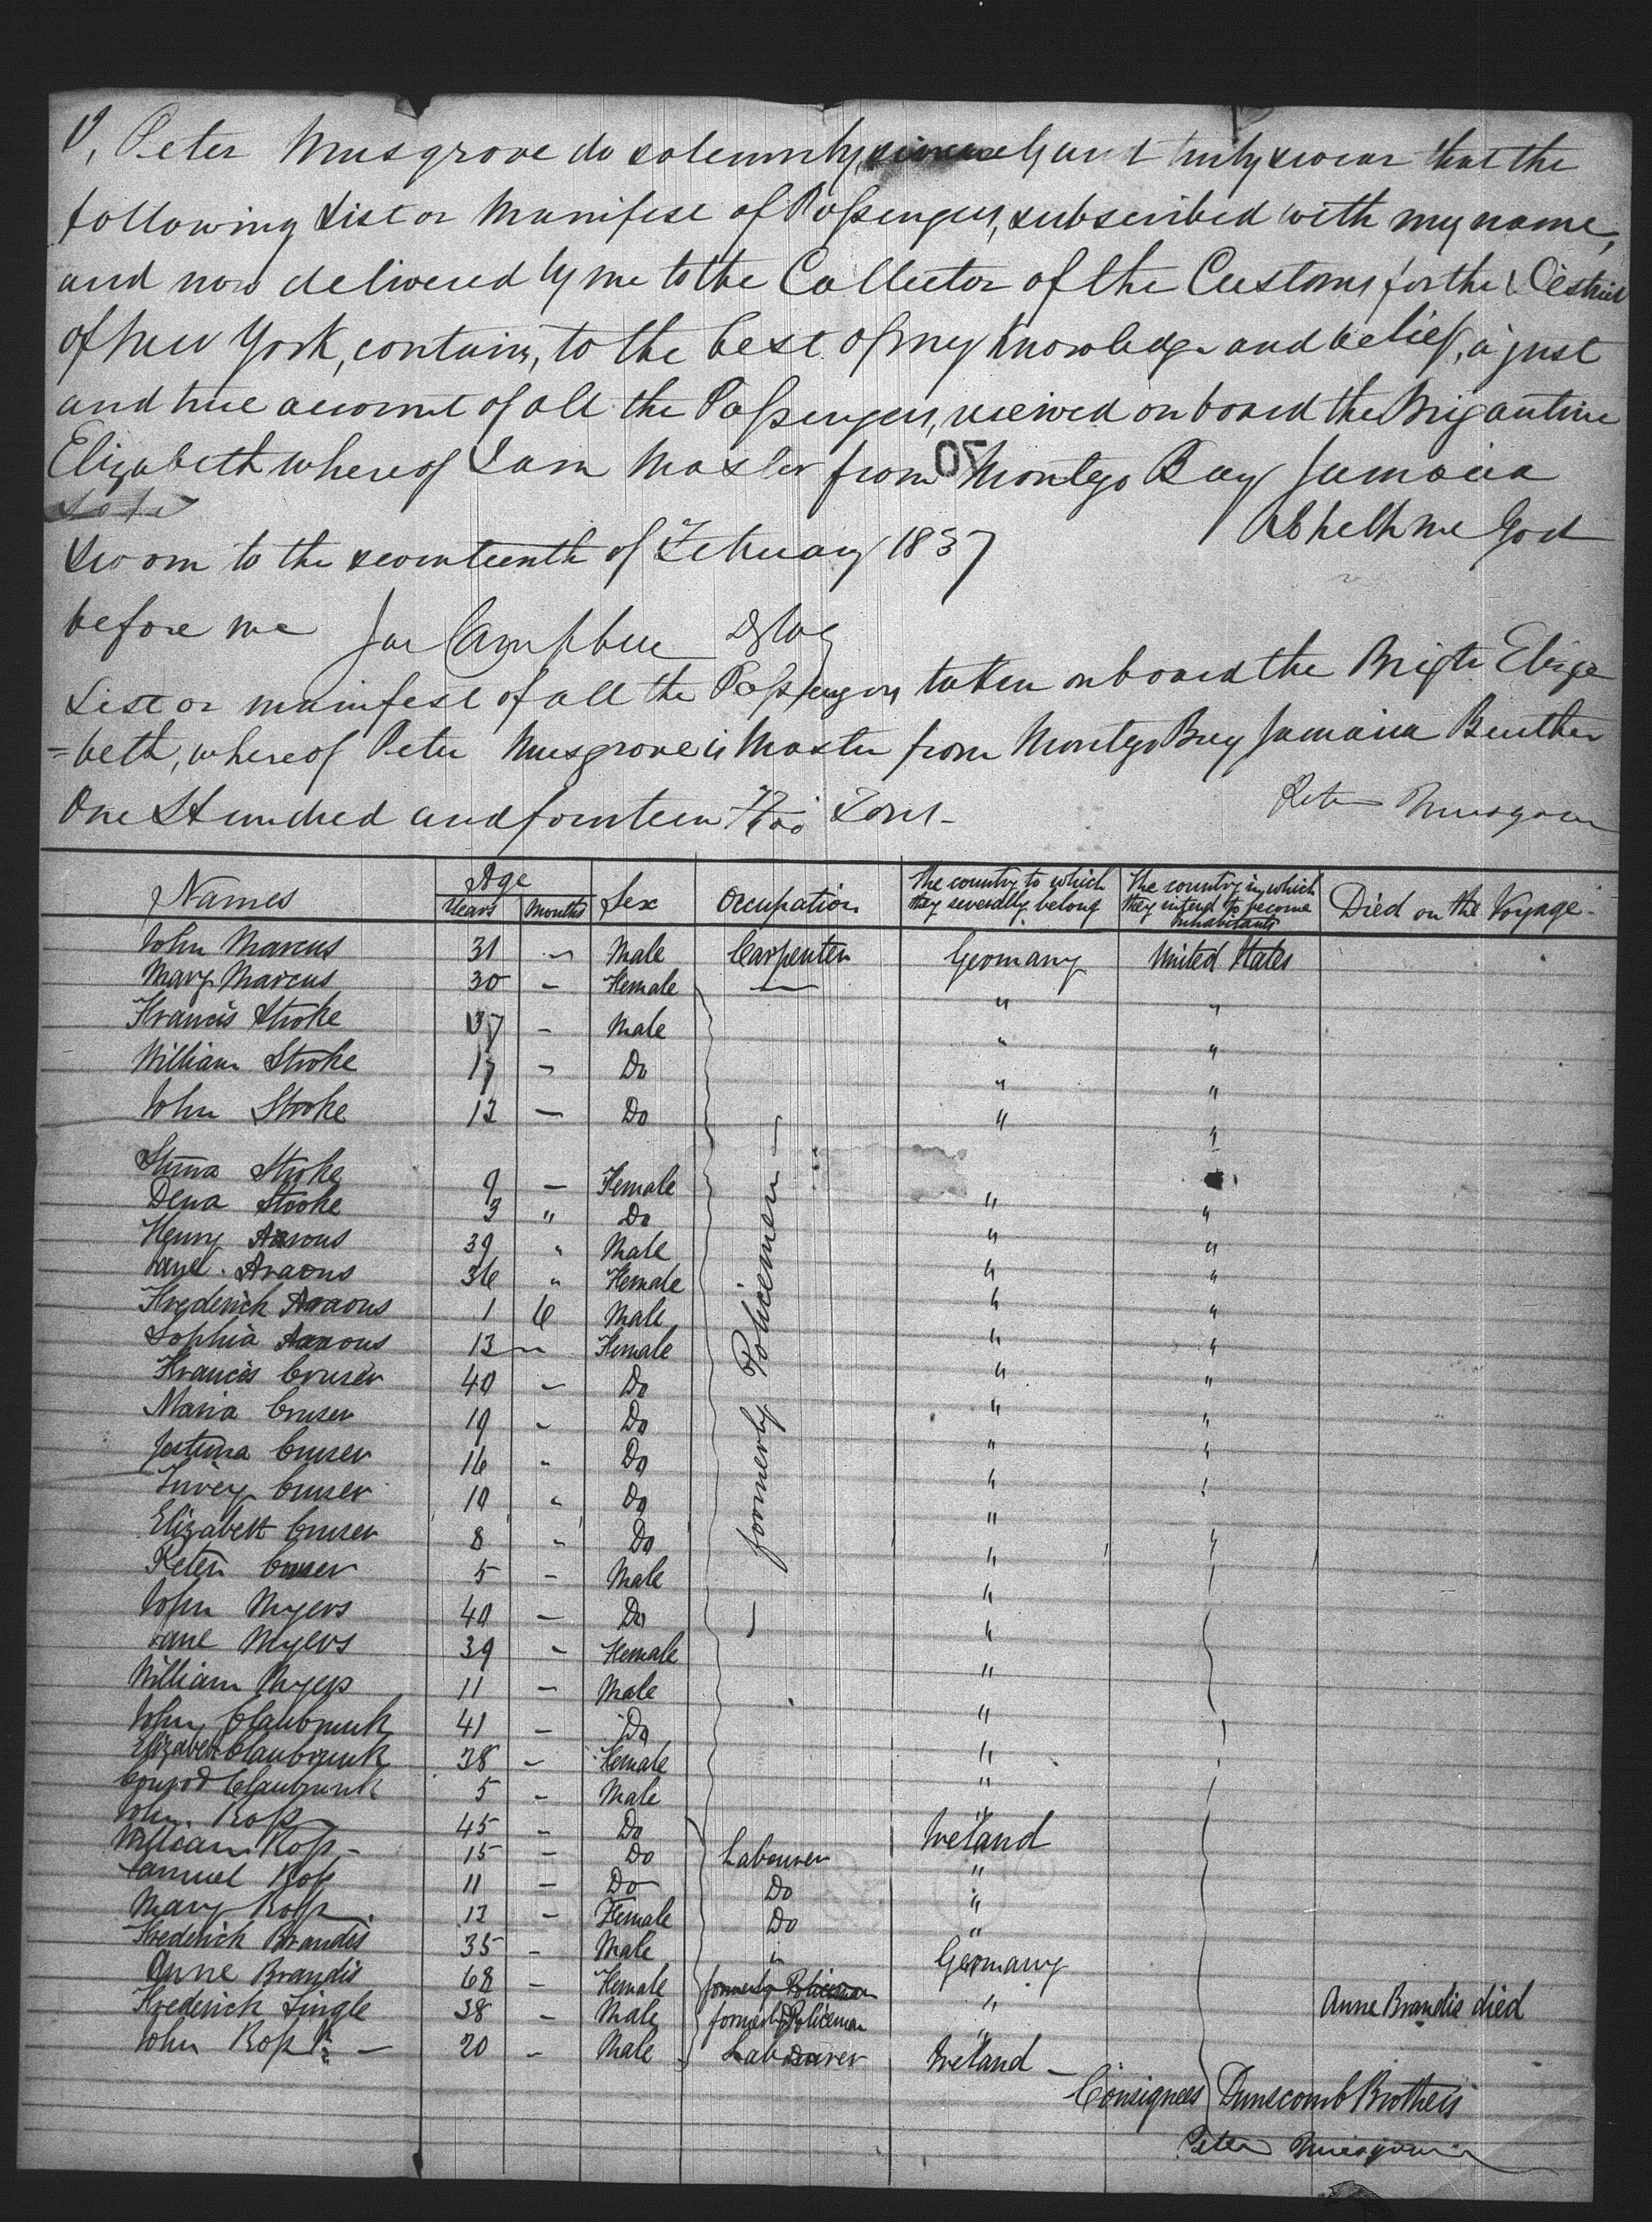 I, Peter Musgrove do solemnly, sincerely and truly swear that the
following List or Manifest of Passengers, subscribed with my name,
and now delivered by me to the Collector of the Customs for the District
of New York, contains, to the best of my knowledge and belief, a just
and true account of all the Passengers, received on board the Brigantine
Elizabeth whereof I am Master from Montego Bay Jamaica
So help me God
Sworn to the seventeenth of February 1837
before me Jas Campbell
List or manifest of all the Passengers taken on board the Brigtn Eliza
=beth, whereof Peter Musgrove is Master from Montego Bay Jamaica Burthen
One Hundred and fourteen Tons-
Peter Musgrove
Names Age Years Months Sex Occupation The country to which they severally belong The country in which they intend to become inhabitants Died on the Voyage-
John Marcus 31 " Male Carpenter Germany United States
Mary Marcus 30 - Female — " "
Francis Stroke 37 - Male " "
William Stroke 17 - Do " "
John Stroke 12 - Do " "
Stina Stroke 9 - Female " "
Dena Stroke 3 " Do " "
Henry Aarons 39 " Male " "
Jane Araons 36 " Female " "
Frederick Aarons 1 6 Male " "
Sophia Aarons 13 - Female " "
Francis Cruser 40 - Do " "
Maria Cruser 19 - Do " "
Cruser 16 " Do " "
Cruser 10 " Do "
Elizabeth Cruser 8 " Do " "
Peter Cruser 5 - Male "
John Myers 40 - Do "
Jane Myers 39 - Female "
William Myers 11 - Male "
formerly Policemen
John 41 - Do "
Elizabeth 38 - Female "
5 - Male "
John Roſs 45 - Do Labourer Ireland
William Roſs - 15 - Do Do "
Samuel Roſs 11 - Do Do "
Mary Roſs 12 - Female " "
Frederick Brandis 35 - Male formerly Policeman Germany
Anne Brandis 68 - Female " Anne Brandis died
Frederick Lingle 38 - Male formerly Policeman "
John Roſs Jr - 20 - Male Labourer Ireland -
Consignees Dunscomb Brothers
Peter Musgrove